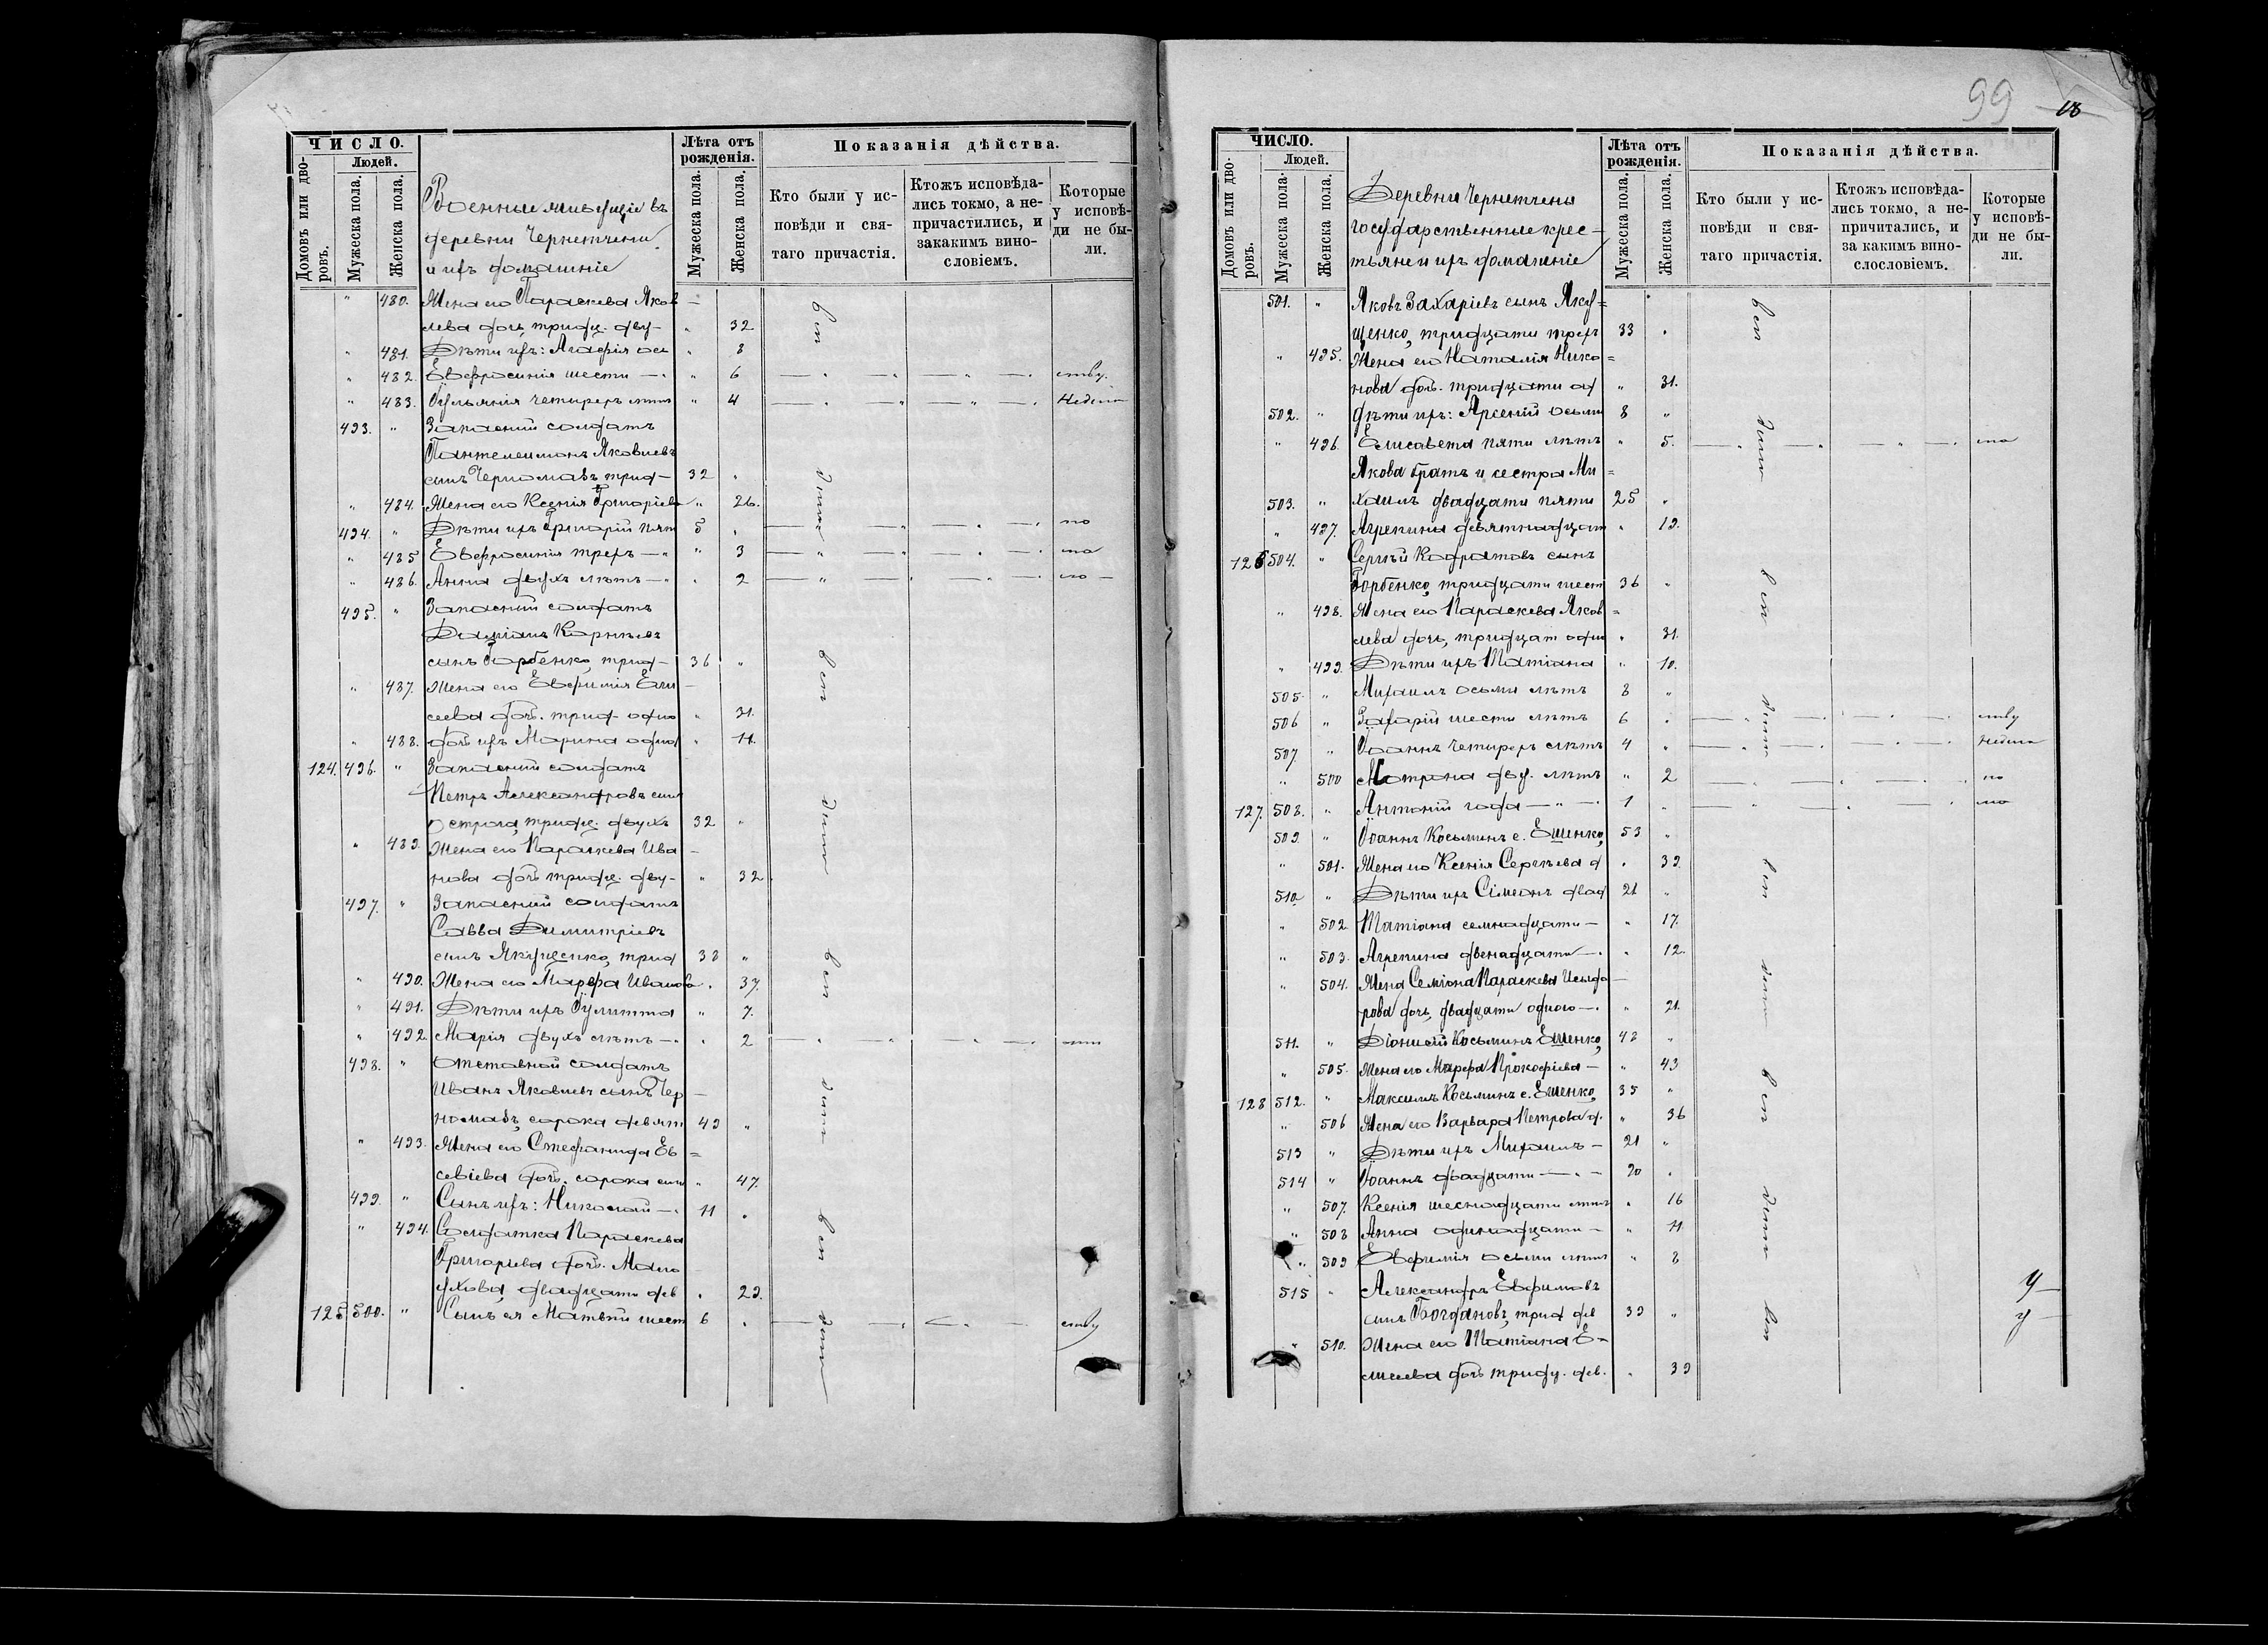 ЧИСЛО.
Людей.
Домовъ или дворовъ.
Мужеска пола.
Женска пола.
Военные живущіе въ
деревни Чернетчени
и ихъ домашніе
Лѣта отъ рожденія.
Мужеска пола.
Женска пола.
Показанія дѣйства.
Кто были у исповѣди и святаго причастія.
Ктожъ исповѣдались токмо, а непричастились, и закакимъ винословіемъ.
Которые у исповѣди не были.
" 480. Жена его Параскева Яков-
лева дочь, тридц. дву- " 32
" 481. Дѣти ихъ: Агафія ось " 8
" 482. Евфросинія шести " 6
" 483. Іульянія четырехъ лѣтъ " 4
493. " Запасный солдатъ
Пантелеимонъ Яковлевъ
сынъ Черномазъ, трид- 32 "
" 484. Жена его Ксенія Григоріева " 26.
494. " Дѣти ихъ Григорій пят 5 " по
" 485 Евфросинія трехъ " 3
" 486. Анна двухъ лѣтъ " 2
495. " Запасный солдатъ
Даміанъ Корнѣевъ
сынъ Горбенко, трид- 36 "
" 487. Жена его Евфимія Ели-
сеева доч. трид. одно " 31.
" 488. дочь ихъ Марина одно " 11.
124. 496. " Запасный солдатъ
Петръ Александровъ сынъ
Острога, тридц. двухъ 32 "
" 489. Жена его Параскева Ива-
нова дочь тридц. дву- " 32
497. " Запасный солдатъ
Савва Димитріевъ
сынъ Якущенко, трид 38 "
" 490. Жена его Марфа Иванова " 37.
" 491. Дѣти ихъ Іулитта " 7.
" 492 Марія двухъ лѣтъ " 2
498. " Отставной солдатъ
Иванъ Яковлевъ сынъ Чер-
номазъ, сорока девят 49 "
" 493. Жена его Стефанида Ев-
севіева доч. сорока сем " 47.
499. " Сынъ ихъ: Николай 11 "
" 494. Солдатка Параскева
Григорьева доч.
двадцати дев " 29.
125. 500. " Сынъ ея Матвѣй шест 6 "
99
ЧИСЛО.
Людей.
Домовъ или дворовъ.
Мужеска пола.
Женска пола.
Деревни Чернетчени
государственные крес-
тьяне и ихъ домашніе
Лѣта отъ рожденія.
Мужеска пола.
Женска пола.
Показанія дѣйства.
Кто были у исповѣди и святаго причастія.
Ктожъ исповѣдались токмо, а непричитались, и за какимъ винослословіемъ.
Которые у исповѣди не были.
501. " Яковъ Захаріевъ сынъ Яку-
щенко, тридцати трехъ 33 "
" 495. Жена его Наталія Нико-
нова доч. тридцати од " 31.
502. " дѣти ихъ: Арсеній осьми 8 "
" 496. Елисавета пяти лѣтъ " 5.
Якова братъ и сестра Ми-
503. " хаилъ двадцати пяти 25 "
" 497. Агрепина девятнадцат " 19.
126 504. " Сергѣй Кодратовъ сынъ
Горбенко, тридцати шест 36 "
" 498. Жена его Параскева Яков-
лева дочь, тридцат одн " 31.
" 499. Дѣти ихъ Татіана " 10.
505. " Михаилъ осьми лѣтъ 8 "
506 " Захарій шести лѣтъ 6 "
507. " Іоаннъ четырехъ лѣтъ 4 "
" 500 Матрона дву. лѣтъ " 2 по
127. 508. " Антоній года 1 "
509. " Іоаннъ Косьминъ с. Ешенко, 53 "
" 501. Жена его Ксенія Сергѣева д " 39
510. " Дѣти ихъ Сімеонъ двад 21 "
" 502 Татіана семнадцати " 17.
" 503. Агрепина двенадцати " 12.
" 504. Жена Семіона Параскева Исидо-
рова дочь, двадцати одного " 21.
511. " Діонисій Косьминъ Ешенко, 48 "
" 505. Жена его Марфа Прокофіева " 43
128 512. " Максимъ Косьминъ с. Ешенко, 35 "
" 506 Жена его Варвара Петрова д. " 36
513 " Дѣти ихъ Михаилъ 21 "
514 " Іоаннъ двадцати 20 "
" 507. Ксенія шеснадцати лѣтъ " 16
" 508 Анна одинадцати " 11
" 509 Евфимія осьми лѣтъ " 8
515 " Александръ Евфимовъ
сынъ Богдановъ, трид дев 39 "
" 510. Жена его Татіана Е-
лисеева дочь тридц. дев. " 39